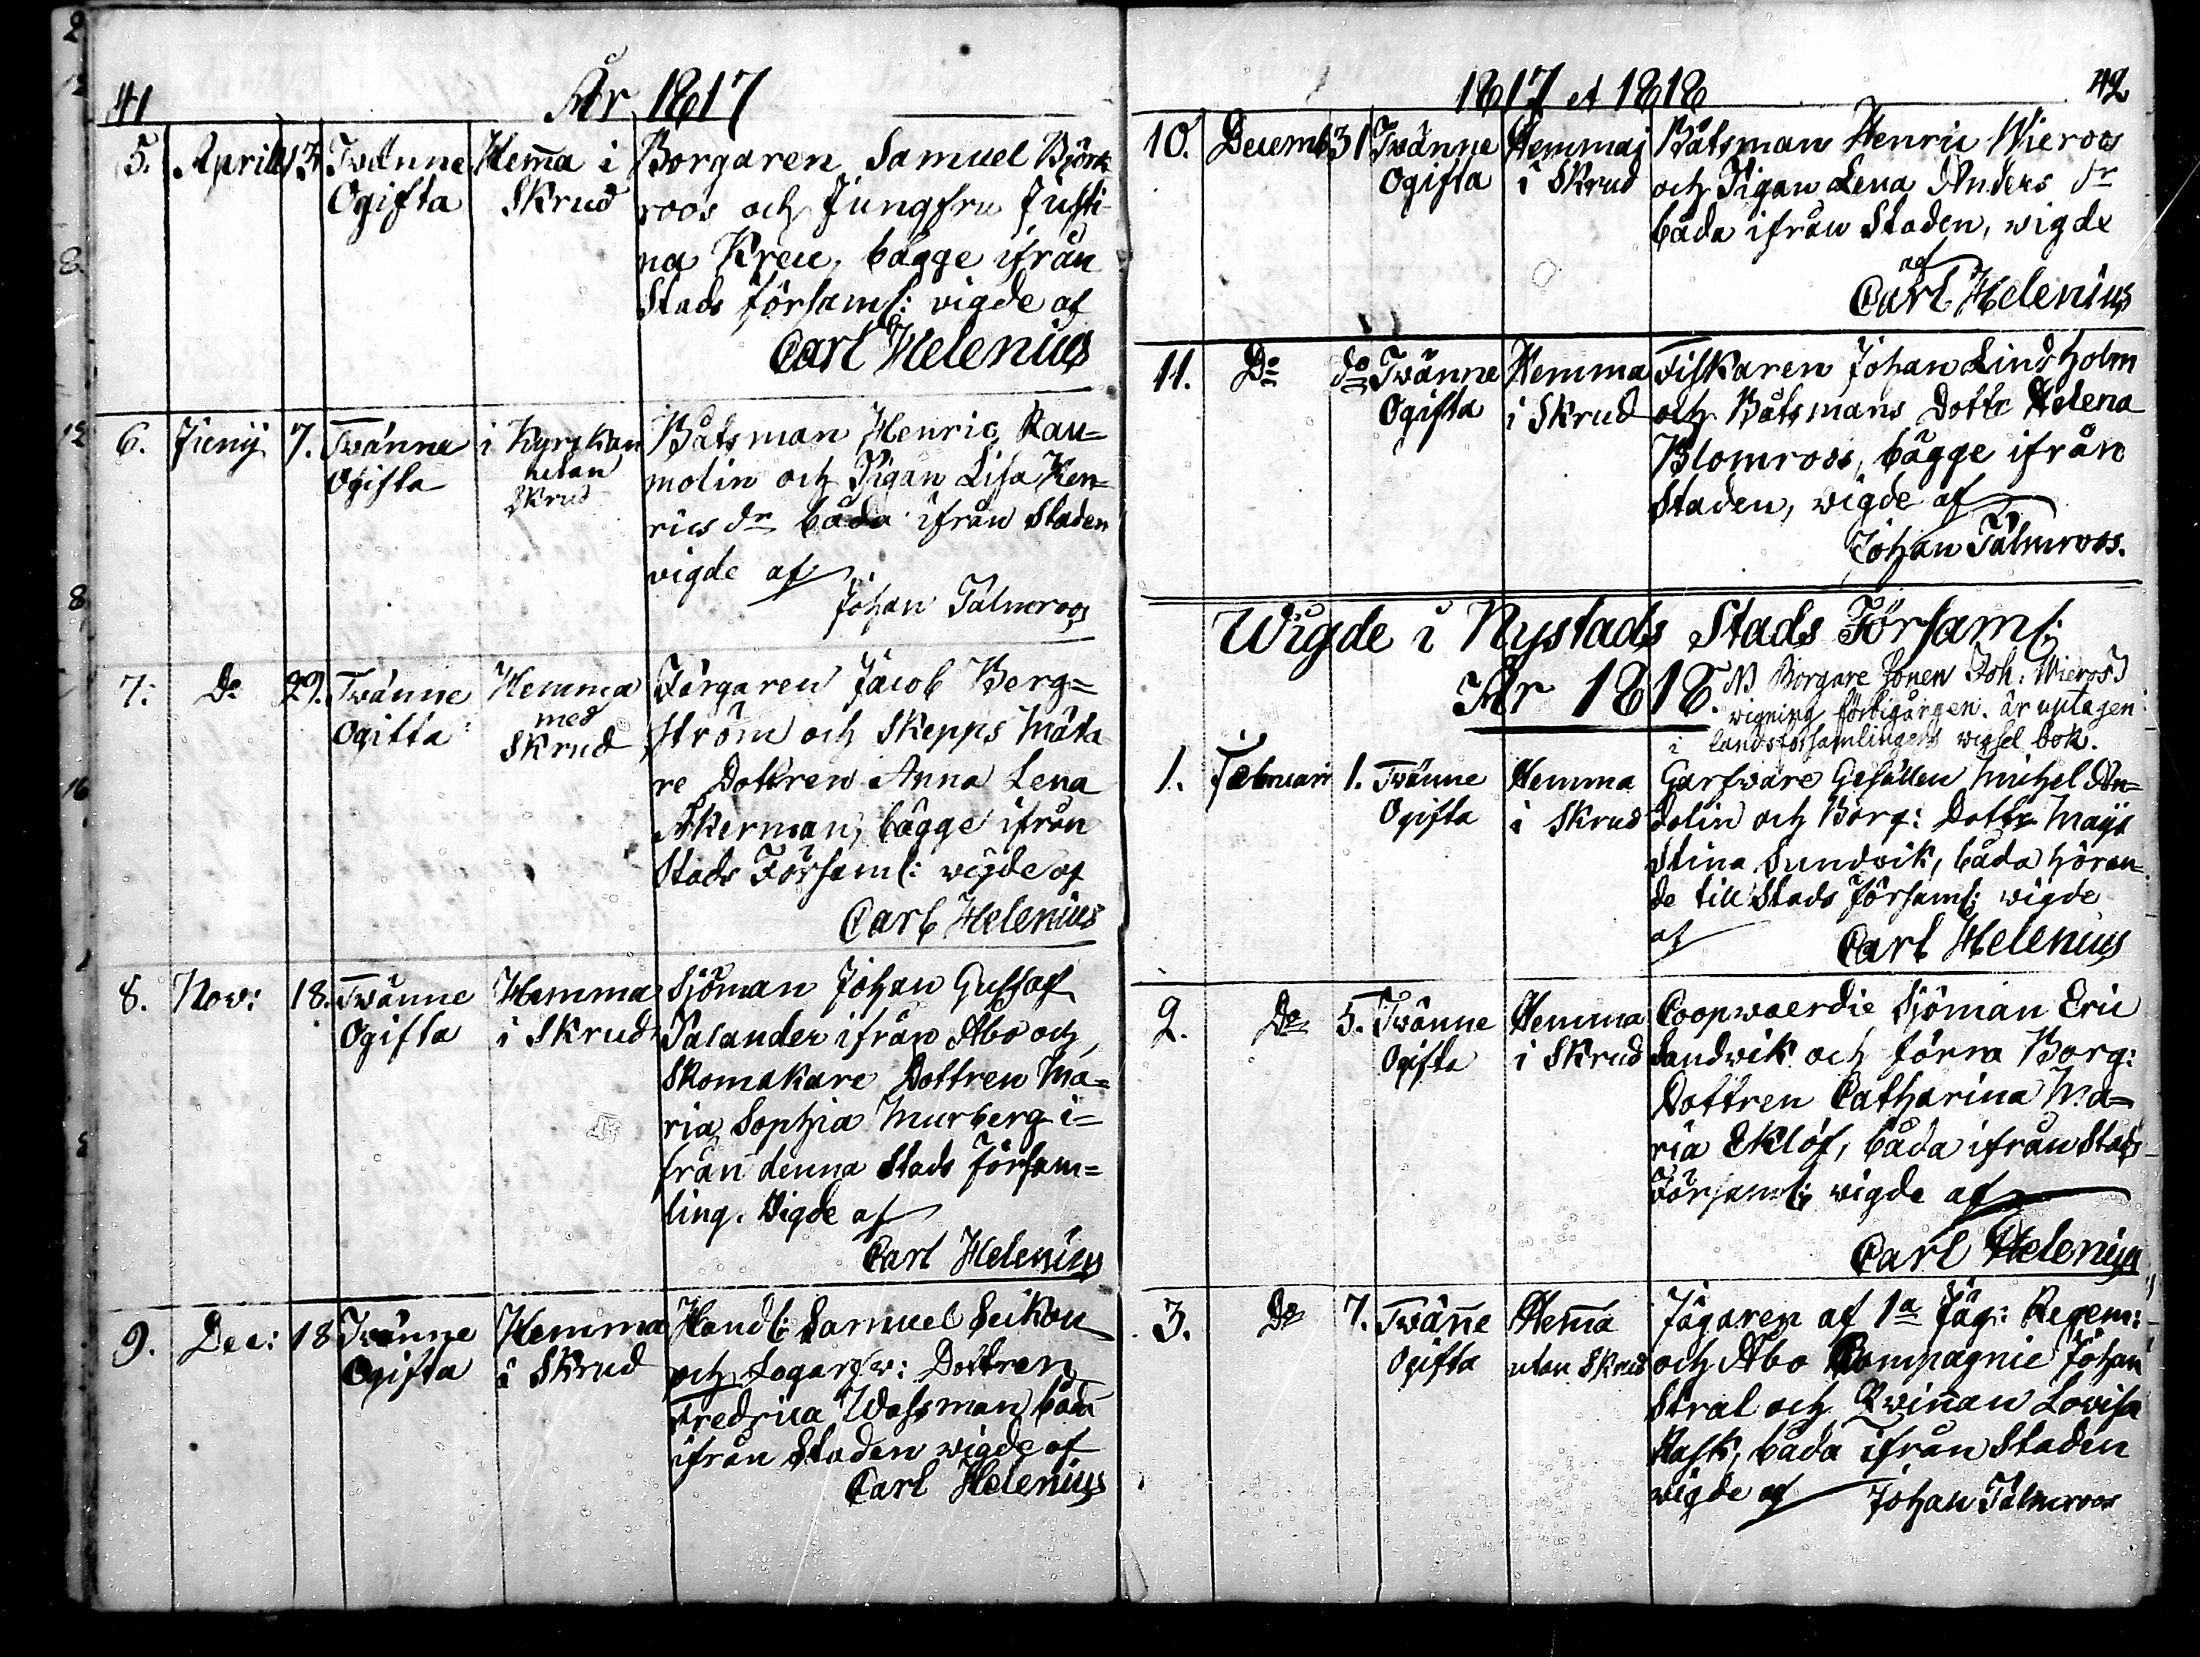 41
År 1817
5. Aprill 13. Twänne Hem̄a i Borgaren Samuel Björk
Ogifta Skrud roos och Jungfru Justi
na Kreu, bägge ifrån
Stads församl: vigde af
Carl Helenius
6. Junij 7. Twänne i Kyrkan Båtsman Henric Rau=
Ogifta utan molin och Pigan Lisa Hen=
Skrud rics dr båda ifrån Staden
vigde af
Johan Palmroos
7. Do 29. Twänne Hemma Färgaren Jacob Berg=
Ogifta med ström och Skepps Mäta
Skrud re Dottren Anna Lena
Åkerman, bägge ifrån
Stads Församl: wigde af
Carl Helenius
8. Nov: 18. Twänne Hemma Sjöman Johan Gustaf
Ogifta i Skrud Palander ifrån Åbo och
Skomakare Dottren Ma=
ria Sophia Murberg i=
från denna Stads Försam=
ling. Vigde af
Carl Helenius
9. Dec: 18 Twänne Hemma Handl: Samuel Seikou
Ogifta i Skrud och Logarfw: Dottren
Fredrica Wassman båda
ifrån Staden wigde af
Carl Helenius
1817 et 1818
42
10. Decemb 31 Twänne Hemmaj Båtsman Henric Wieroos
Ogifta i Skrud och Pigan Lena Anders dr
båda ifrån Staden, wigde
af
Carl Helenius
11. Do do Twänne Hemma Fiskaren Johan Lindholm
Ogifta i Skrud och Båtsmans Dottr Helena
Blomroos, bägge ifrån
Staden, wigde af
Johan Palmroos.
Wigde i Nystads Stads Församl:
År 1818. NB Borgare Sonen Joh: Wieros's
wigning förbigången. är uptagen
i landsförsamlingens wigsel bok.
1. Februarii 1. Twänne Hemma Garfware Gesällen Michel An=
Ogifta i Skrud dolin och Borg: Dottr Maja
Stina Sundvik, båda hören=
de till Stads Församl: wigde
af Carl Helenius
2. Do 5. Twänne Hemma Coopwaerdie Sjöman Eric
Ogifta i Skrud Sandvik och förra Borg:
Dottren Catharina Ma=
ria Eklöf, båda ifrån Stads
Församl: wigde af
Carl Helenius
3. Do 7. Twän̄e Hem̄a Jägaren af 1a Jäg: Regem:
Ogifta utan Skrud och Åbo Compagnie Johan
Stral och Qwin̄an Lovisa
Rask, båda ifrån Staden
wigde af Johan Palmroos